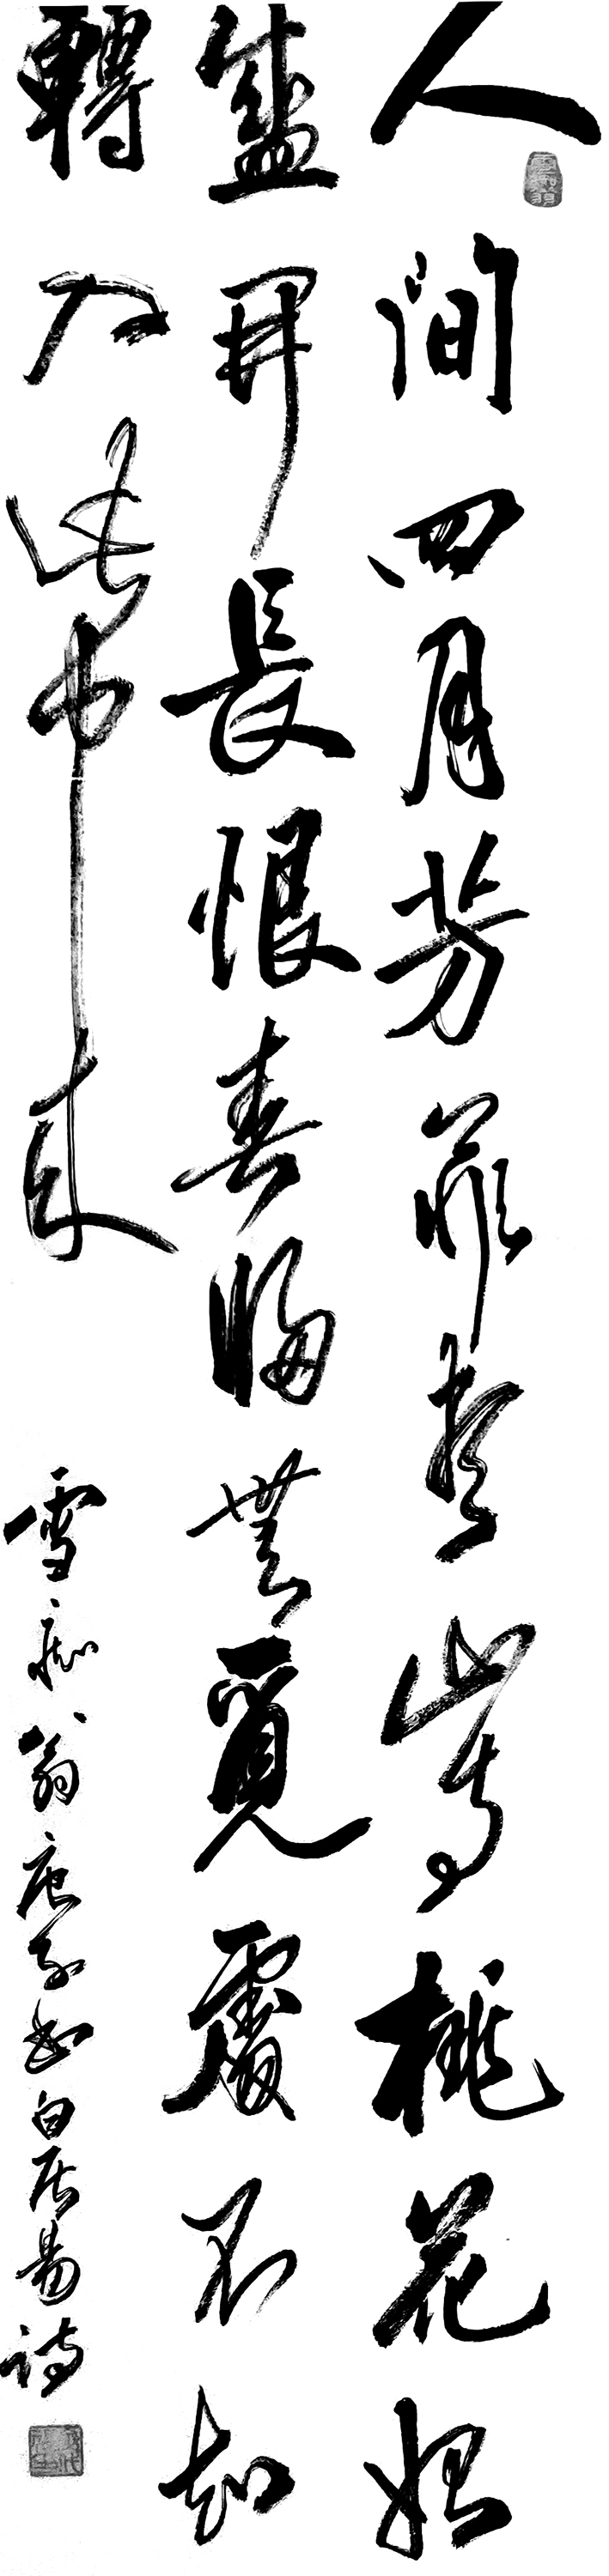 人間四月芳菲盡山寺桃花始
盛開長恨春歸無覓處不知
轉入此中來
雪痴翁庚子書白居易詩